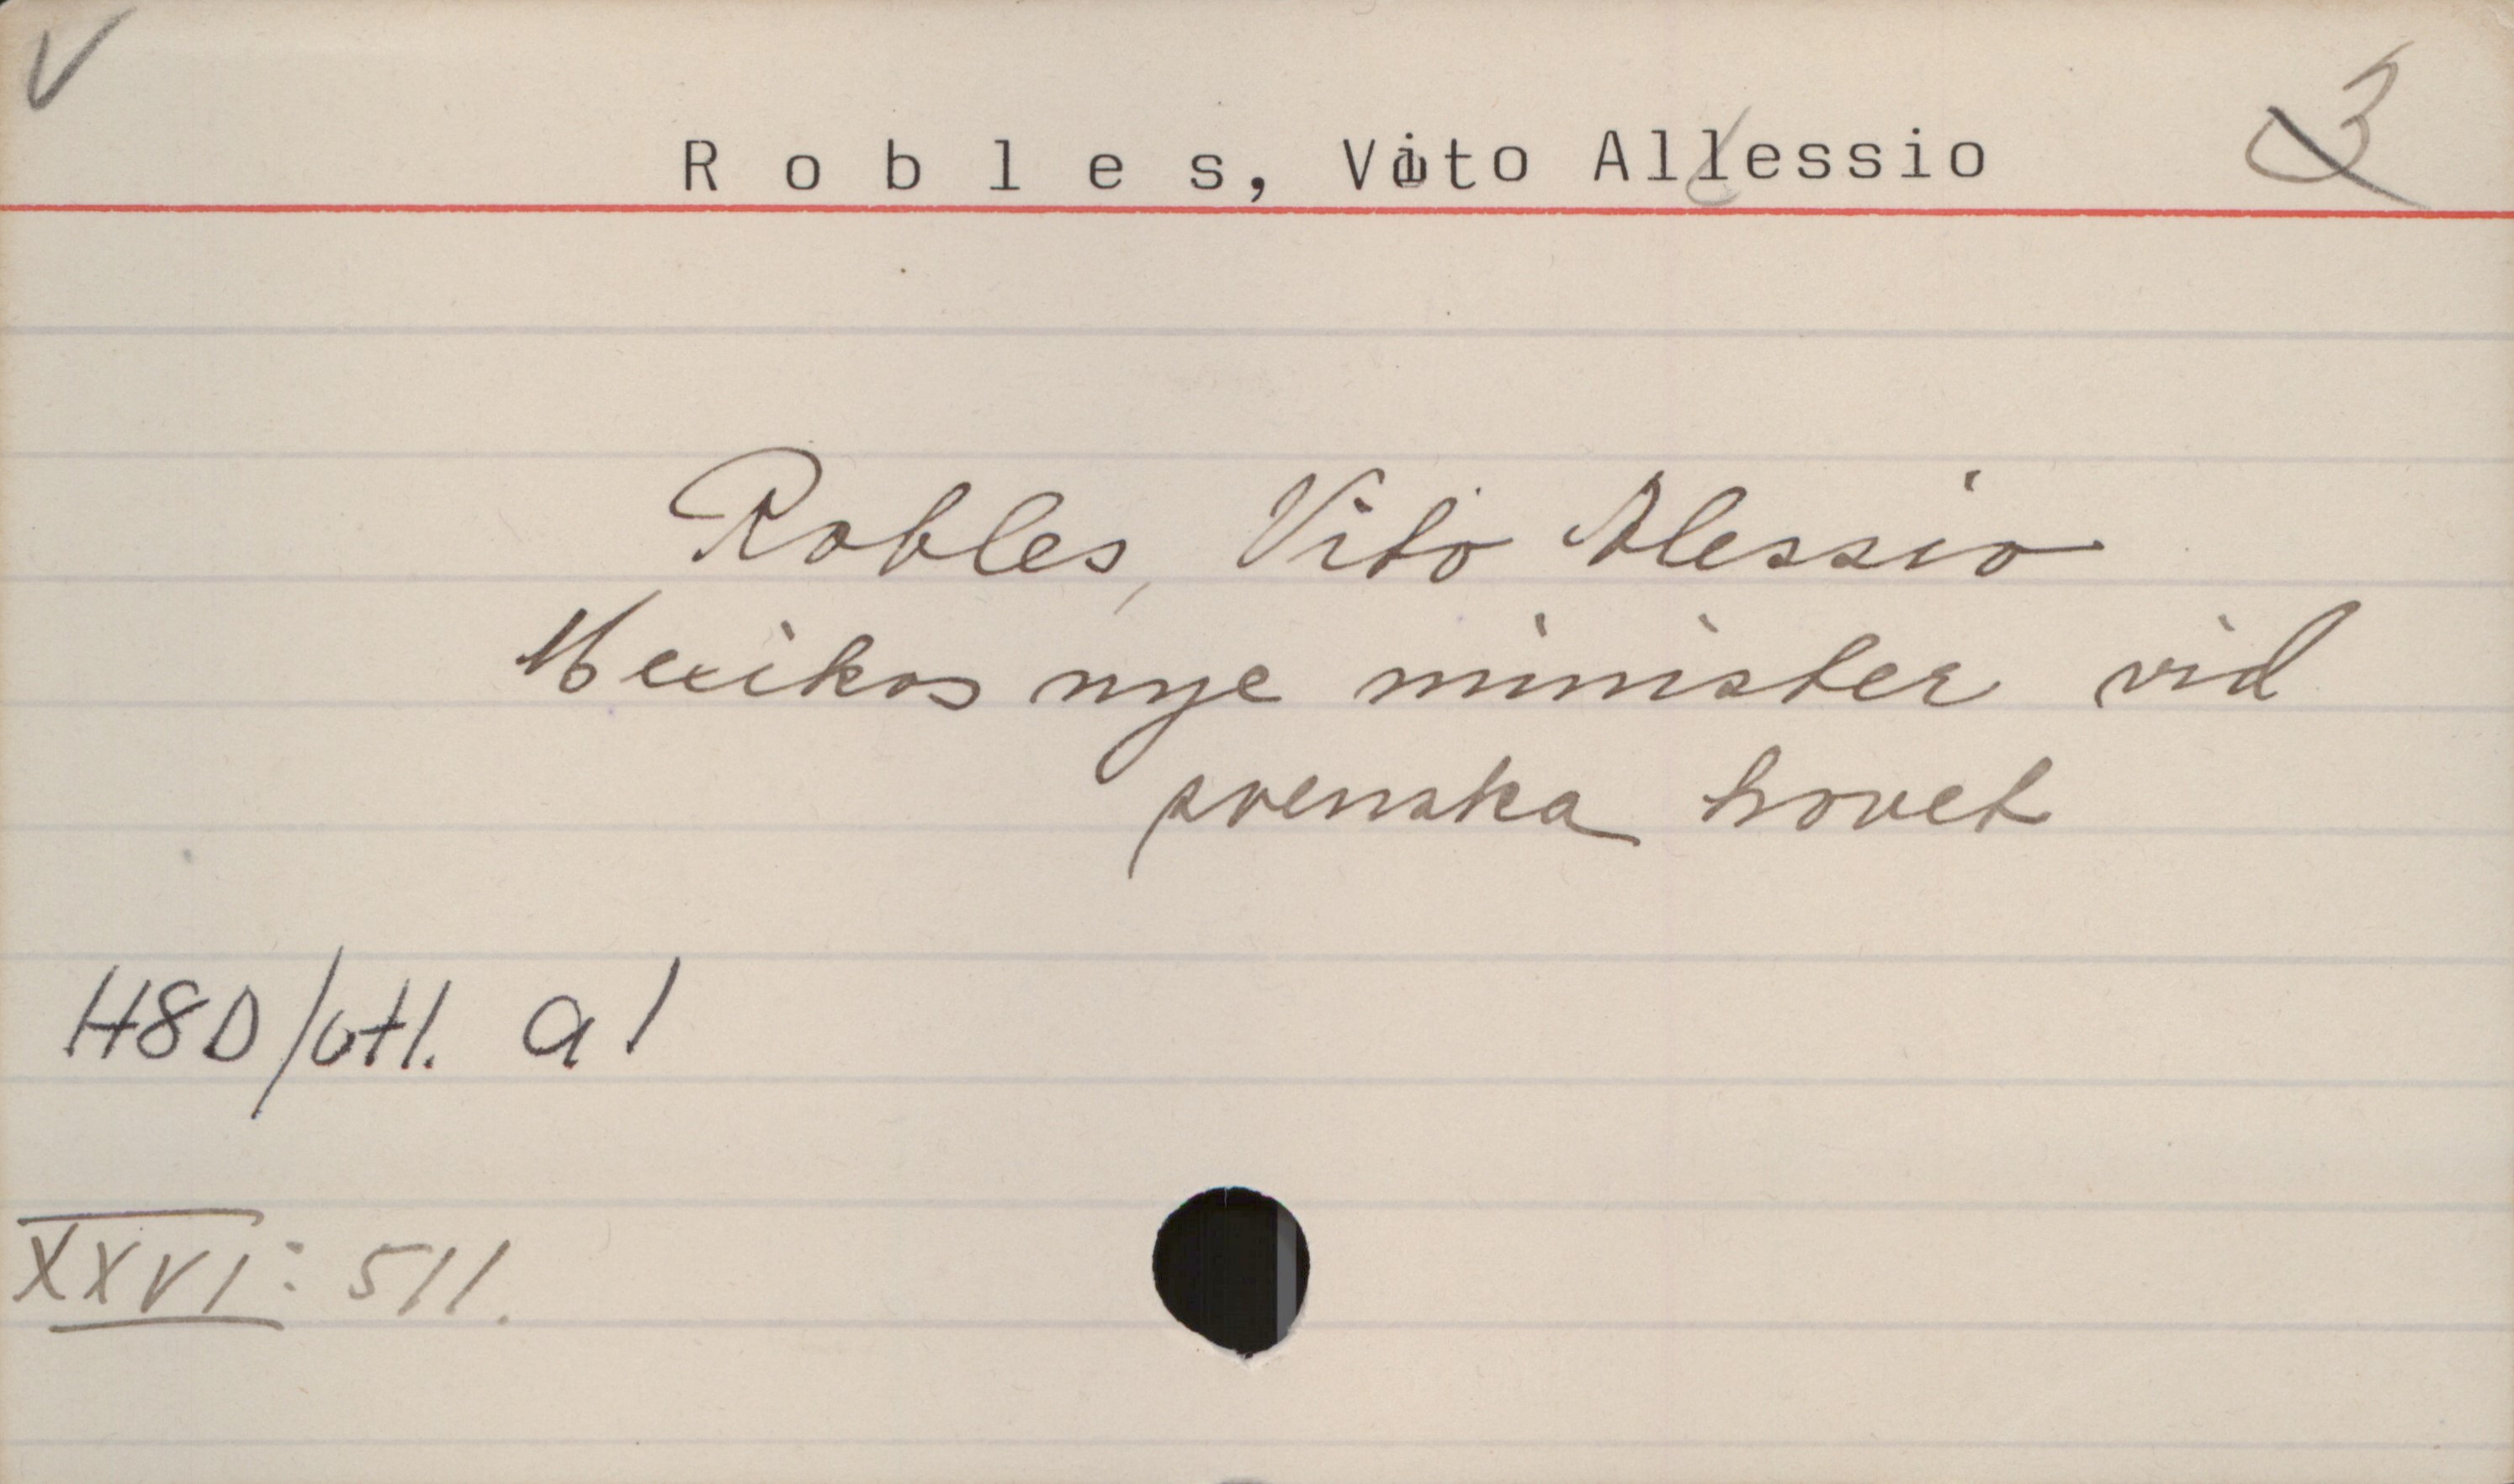 V 3
R o b l e s, Vito Allessio
Robles, Vito Alessio
Mexikos nye minister vid
svenska hovet
H8D/utl. a 1
XXVI: 511.